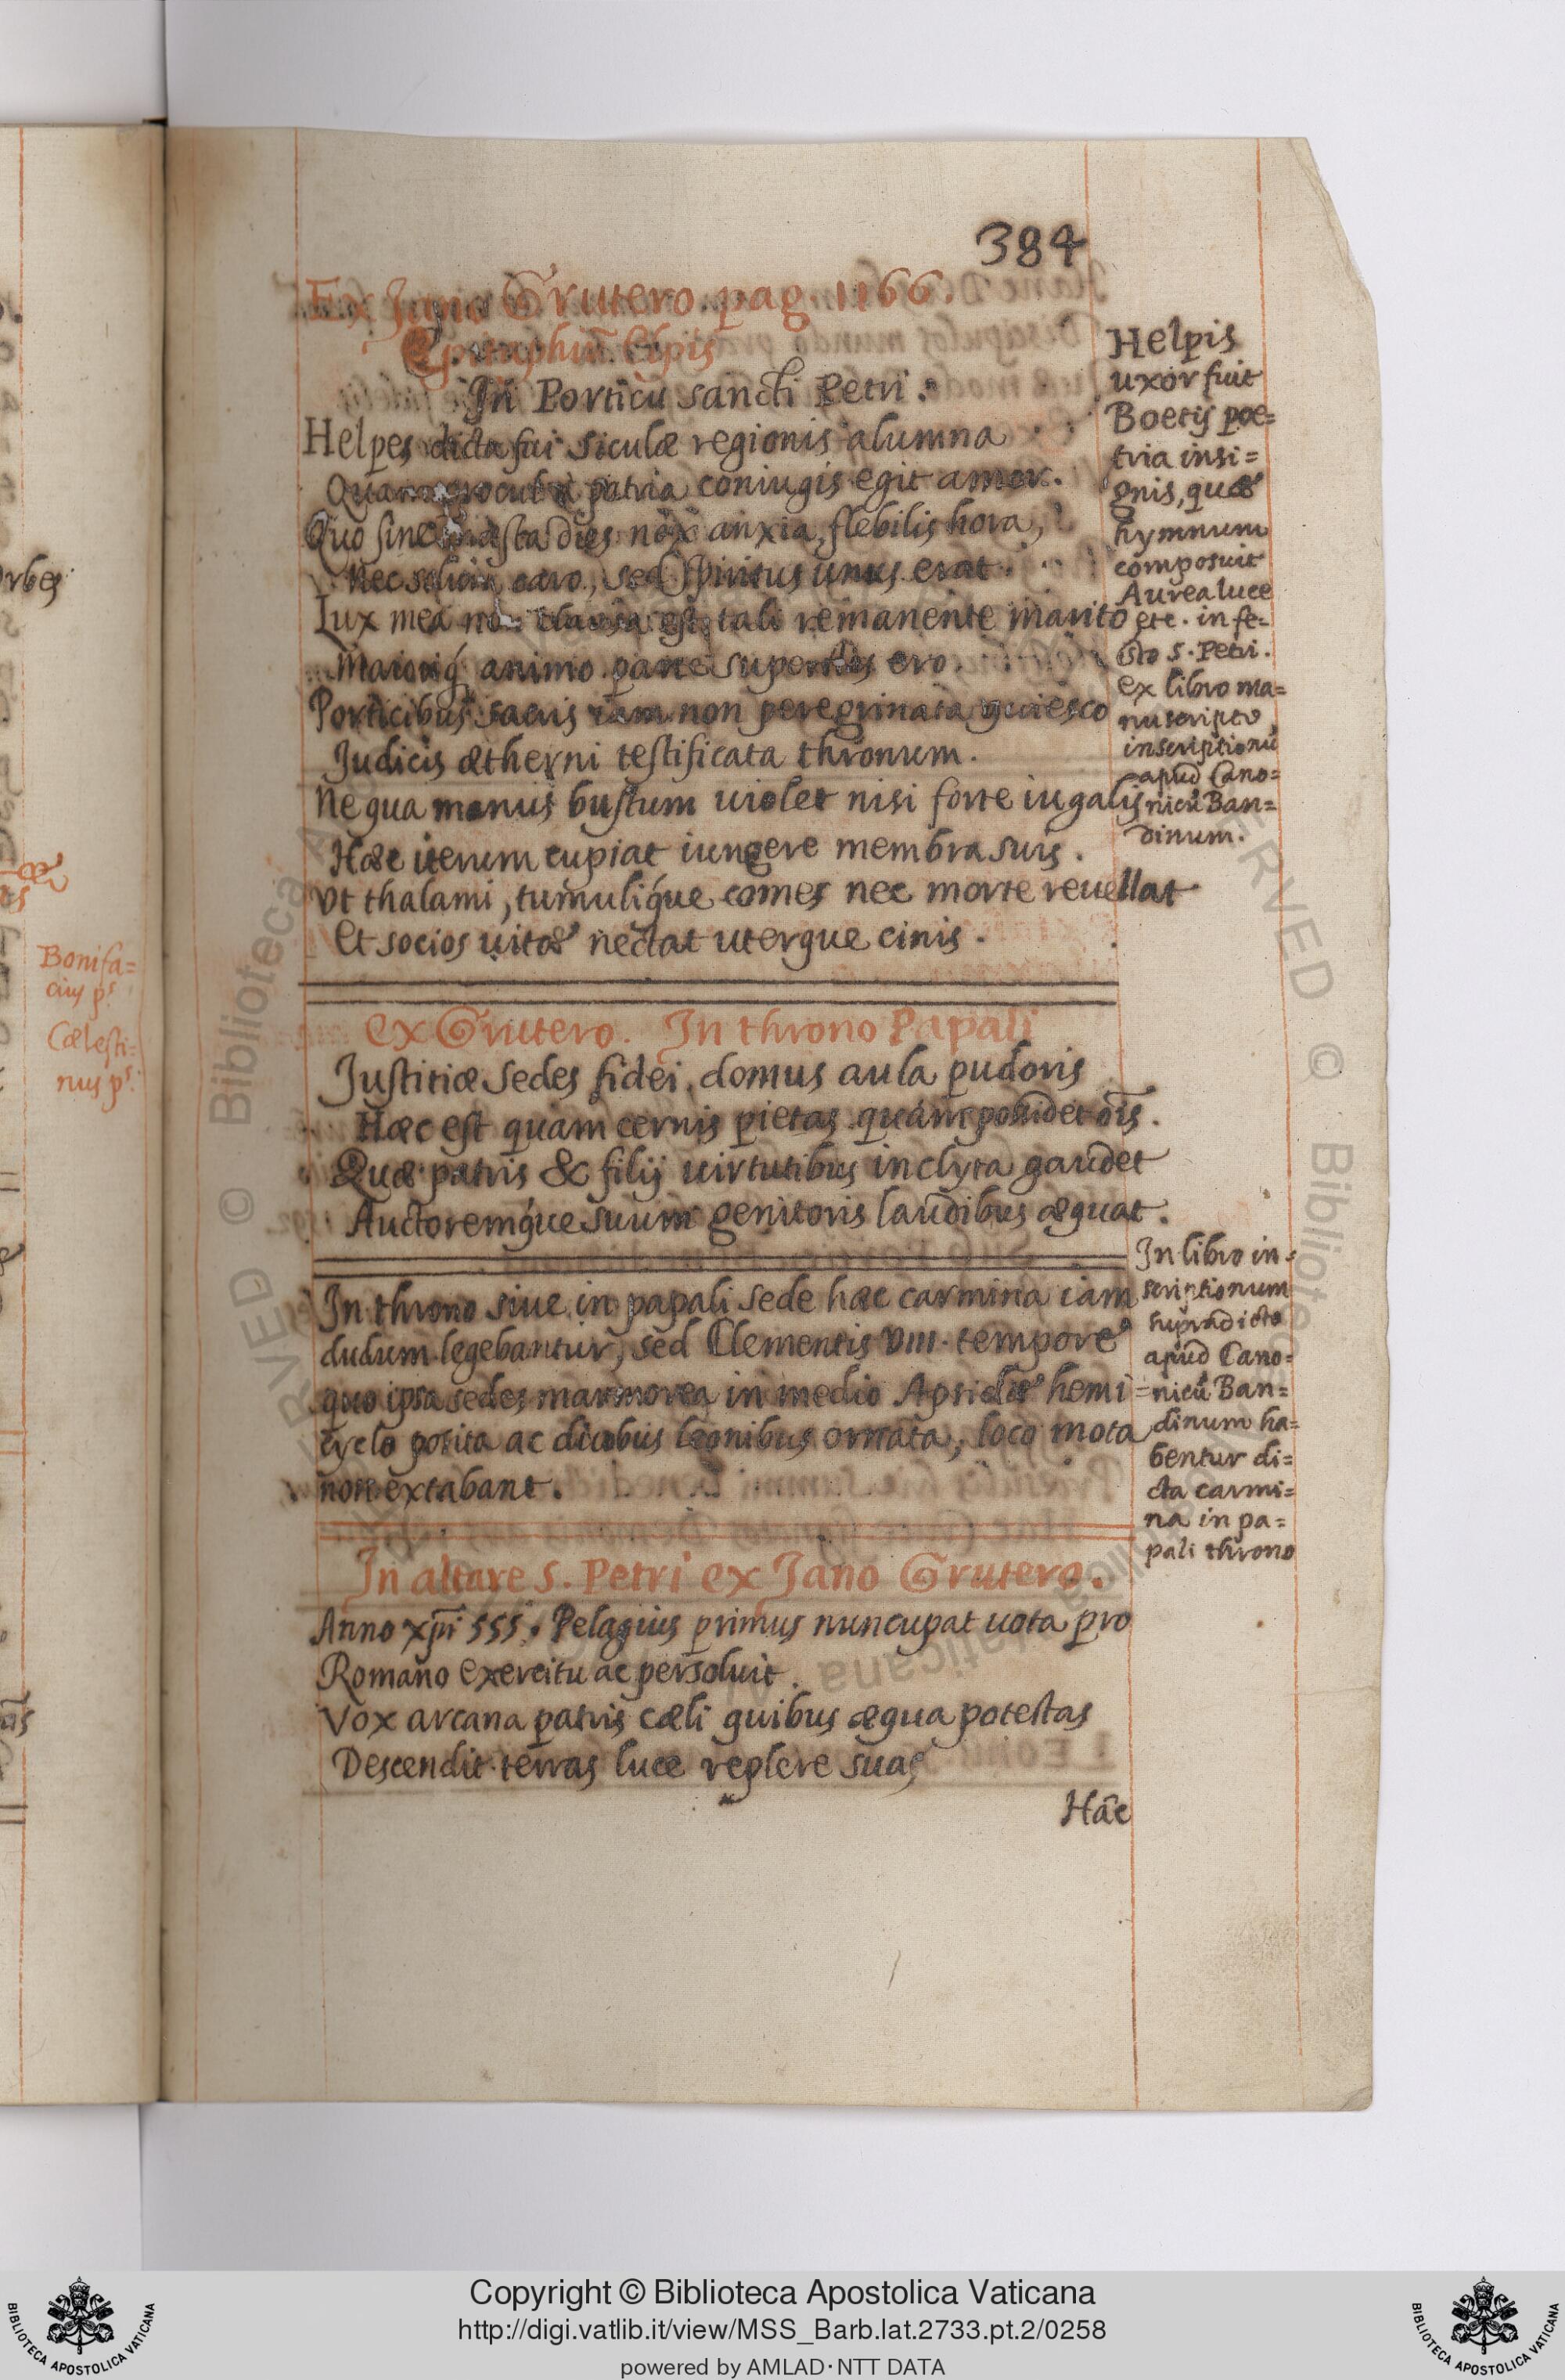 384
Ex Jano Grutero. pag. 1166.
Epitaphiū Elpis
In Porticu sancti Petri.
Helpes dicta fui siculæ regionis alumna
Quam procul a patria coniugis egit amor.
Quo sine mæsta dies nox anxia, flebilis hora,
Nec solum caro, sed spiritus unus erat.
Lux mea non clausa est, tali remanente marito
Maioriq́ animo parte superstes ero.
Porticibus sacris iam non peregrinata quiesco
Judicis ætherni testificata thronum.
Ne qua manus bustum uiolet nisi forte iugalis
Hæc iterum cupiat iungere membra suis.
Vt thalami, tumuliq́ue comes nec morte reuellat
Et socios uitæ nectat uterque cinis.
Helpis
uxor fuit
Boetij poe=
tria insi=
gnis, quæ
hymnum
composuit
Aurea luce
etc. in fe=
sto S. Petri.
ex libro ma=
nuscripto
inscriptionū
apud Cano=
nicū Ban=
dinum.
ex Grutero. In throno Papali
Justitiæ sedes fidei, domus aula pudoris
Hæc est quam cernis pietas quam possidet oīs.
Quæ patris & filij uirtutibus inclyta gaudet
Auctoremq́ue suum genitoris laudibus æquat.
In throno siue in papali sede hæc carmina iam
dudum legebantur, sed Clementis VIII. tempore
quo ipsa sedes marmorea in medio Apsidis hemi=
cyclo posita ac duobus leonibus ornata, loco mota
non extabant.
In libro in=
scriptionum
supradicto
apud Cano=
nicū Ban=
dinum ha=
bentur di=
cta carmi=
na in pa=
pali throno
In altare S. Petri ex Jano Grutero.
Anno xp̄i 555. Pelagius primus nuncupat uota pro
Romano exercitu ac persoluit.
Vox arcana patris cæli quibus æqua potestas
Descendit terras luce replere suas
Hāc
rbes
Bonifa=
cius ps.
Cælesti=
nus ps.
Copyright © Biblioteca Apostolica Vaticana
http://digi.vatlib.it/view/MSS_Barb.lat.2733.pt.2/0258
powered by AMLAD·NTT DATA
BIBLIOTECA APOSTOLICA VATICANA
BIBLIOTECA APOSTOLICA VATICANA